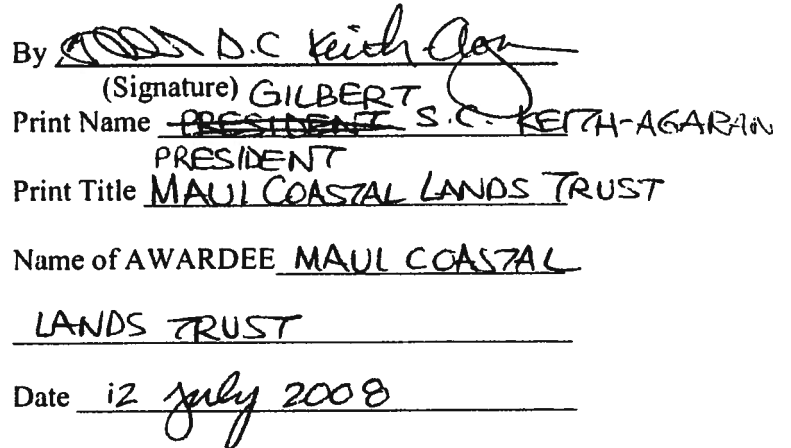 By D.C Keith
(Signature) GILBERT
Print Name PRESIDENT S.C. KEITH-AGARAN
PRESIDENT
Print Title MAUI COASTAL LANDS TRUST
Name of AWARDEE MAUI COASTAL
LANDS TRUST
Date 12 July 2008